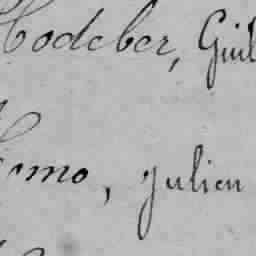 Hodeber, Guil
Como, Julien